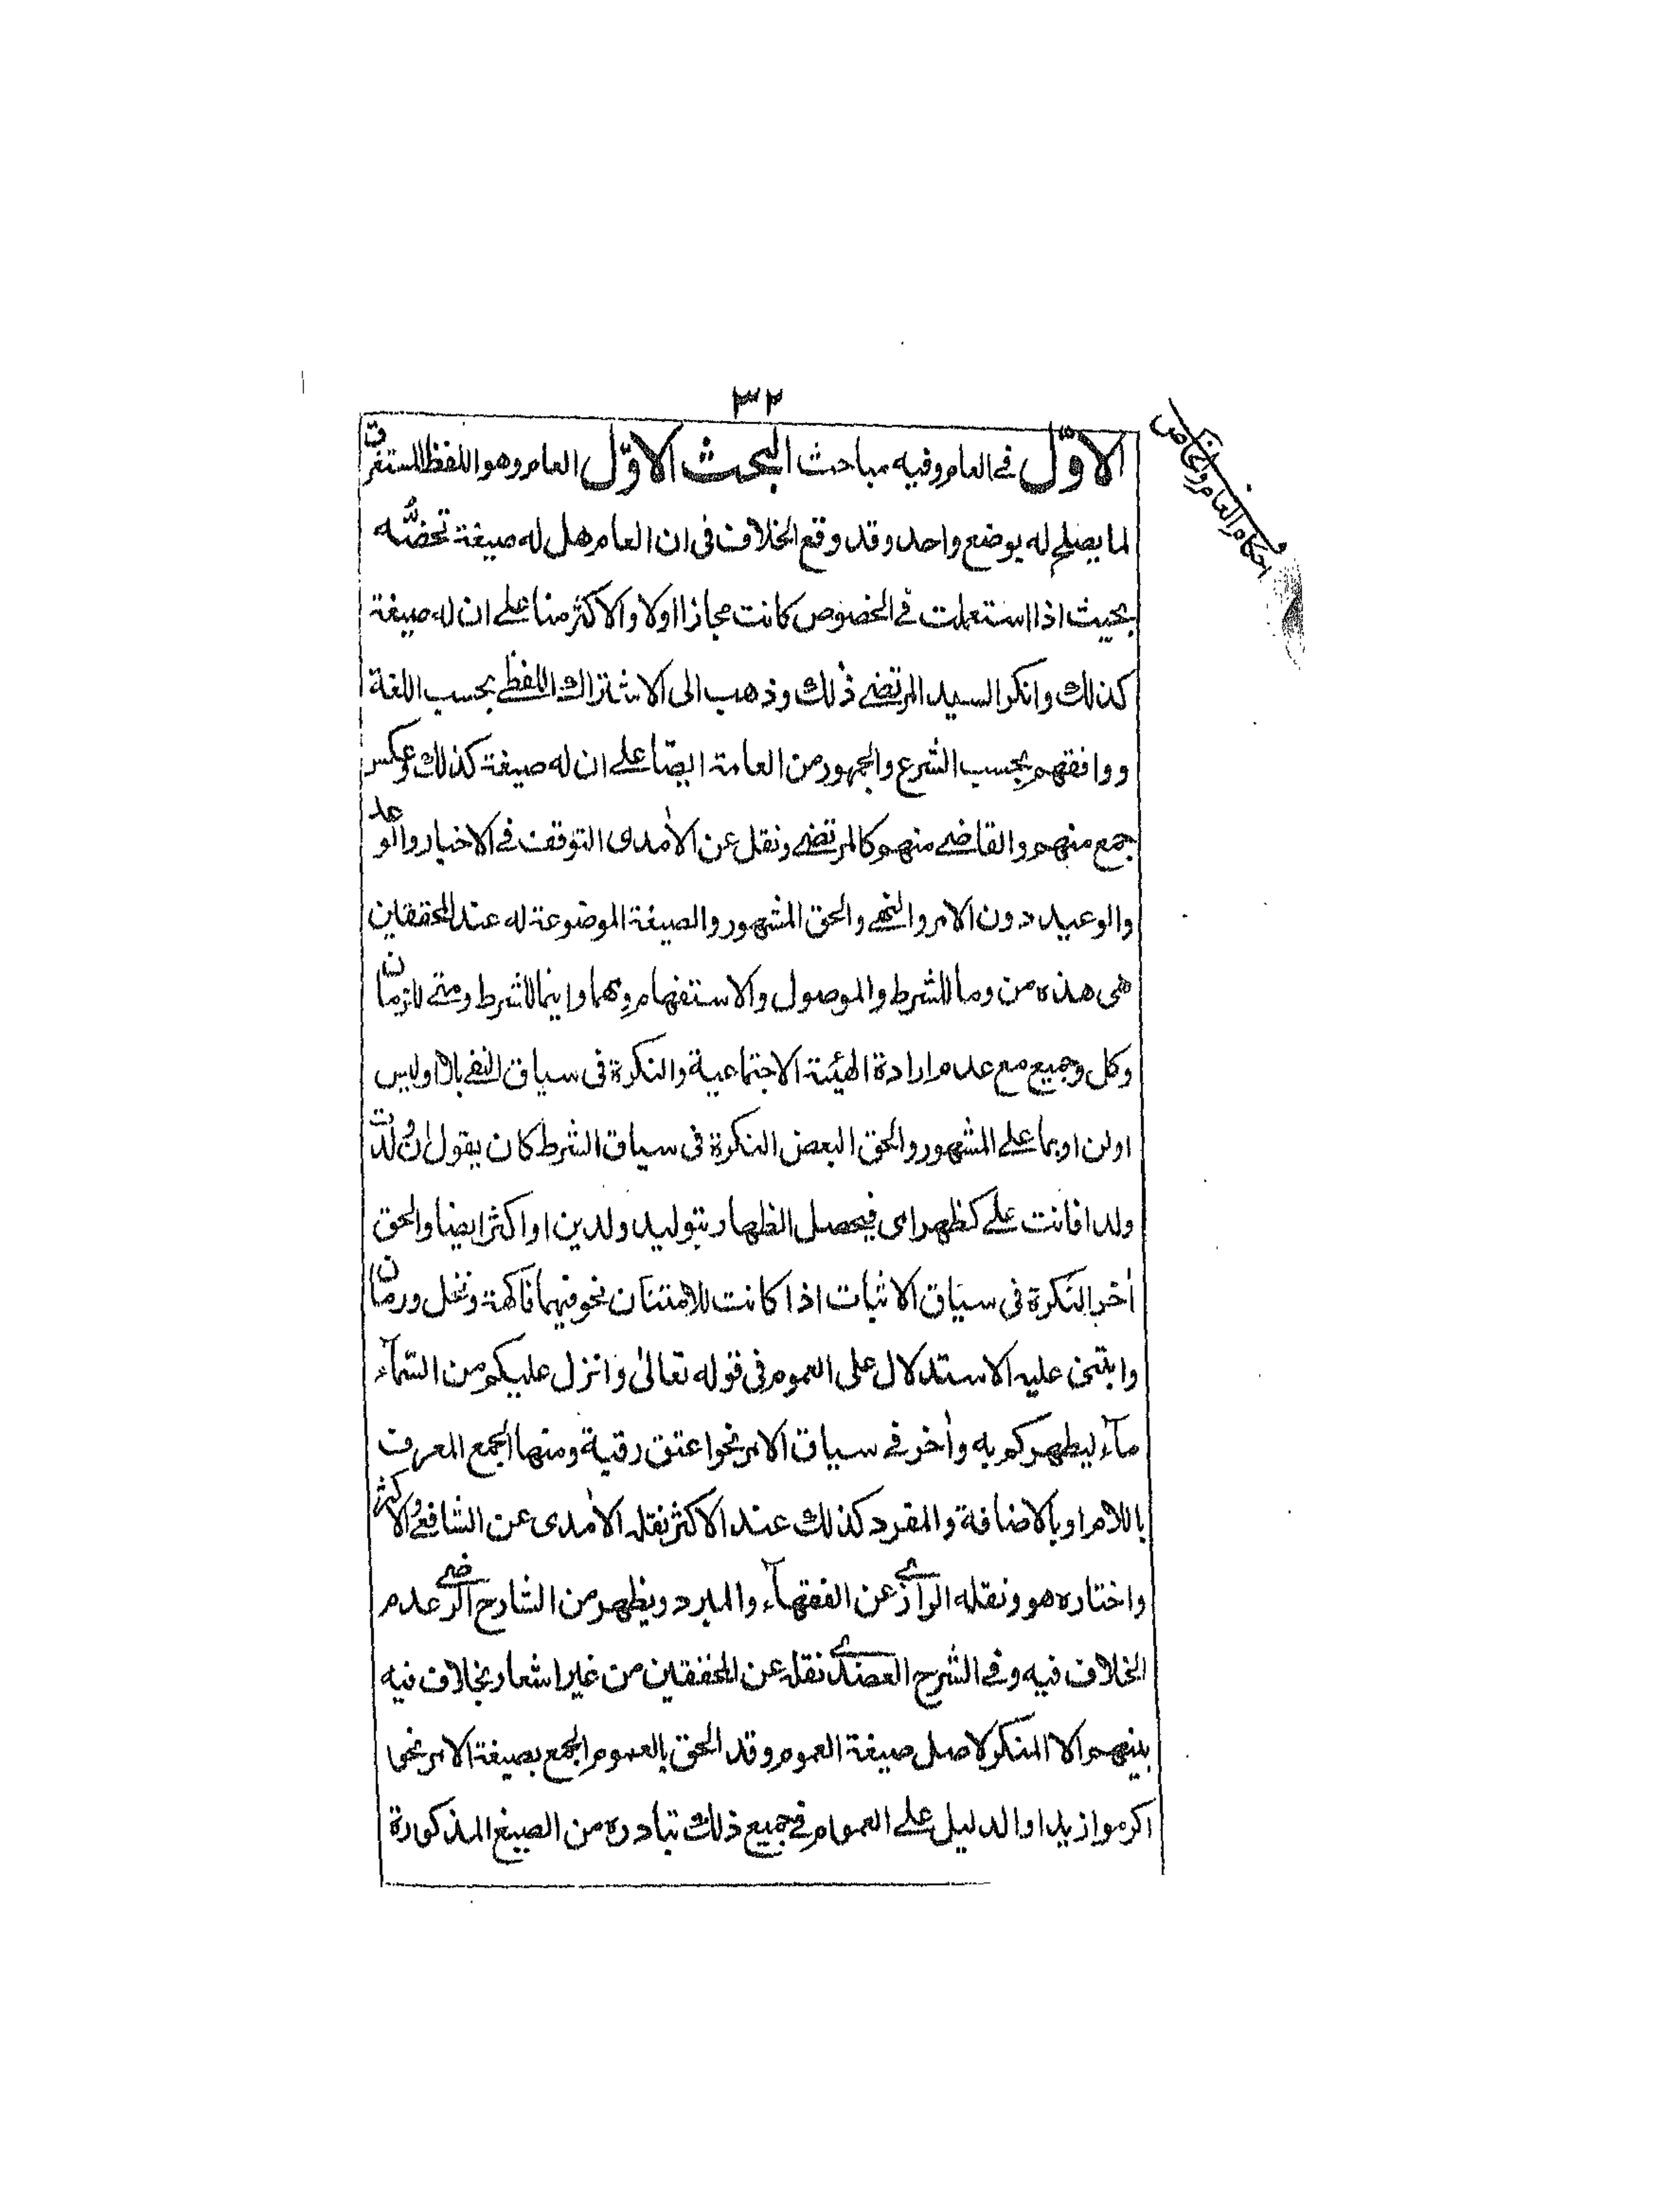 ٣٢
احكام العام والخاص
الاوّل في العام وفيه مباحث البحث الاوّل العام وهو اللفظ المستغرق
لما يصلح له بوضع واحد وقد وقع الخلاف في ان العام هل له صيغة تخصّه
بحيث اذا استعملت في الخصوص كانت مجازا اولا والاكثر منا على ان له صيغة
كذلك وانكر السيد المرتضى ذلك وذهب الى الاشتراك اللفظي بحسب اللغة
ووافقهم بحسب الشرع والجمهور من العامة ايضا على ان له صيغة كذلك وعكس
جمع منهم والقاضي منهم كالمرتضى ونقل عن الآمدى التوقف في الاخبار والوعد
والوعيد دون الامر والنهي والحق المشهور والصيغة الموضوعة له عند المحققين
هى هذه من وما للشرط والموصول والاستفهام ومهما واينما للشرط ومتى للزمان
وكل وجميع مع عدم ارادة الهيئة الاجتماعية والنكرة في سياق النفي بلا او ليس
اولن او بما على المشهور والحق البعض النكرة في سياق الشرط كان يقول ان ولدت
ولدا فانت على كظهر امى فيحصل الظهار بتوليد ولدين او اكثر ايضا والحق
آخر النكرة في سياق الاثبات اذا كانت للامتنان نحو فيهما فاكهة ونخل ورمان
وابتنى عليه الاستدلال على العموم في قوله تعالى وانزل عليكم من السّمآء
مآء ليطهركم به وآخر في سياق الامر نحو اعتق رقبة ومنها الجمع المعرف
باللام او بالاضافة والمفرد كذلك عند الاكثر نقله الآمدى عن الشافعي والاكثر
واختاره هو ونقله الرازي عن الفقهآء والمبرد ويظهر من الشارح الرضي عدم
الخلاف فيه وفي الشرح العضدي نقله عن المحققين من غير اشعار بخلاف فيه
بينهم الا المنكر لاصل صيغة العموم وقد الحق بالعموم الجمع بصيغة الامر نحو
اكرموا زيدا والدليل على العموم في جميع ذلك تبادره من الصيغ المذكورة